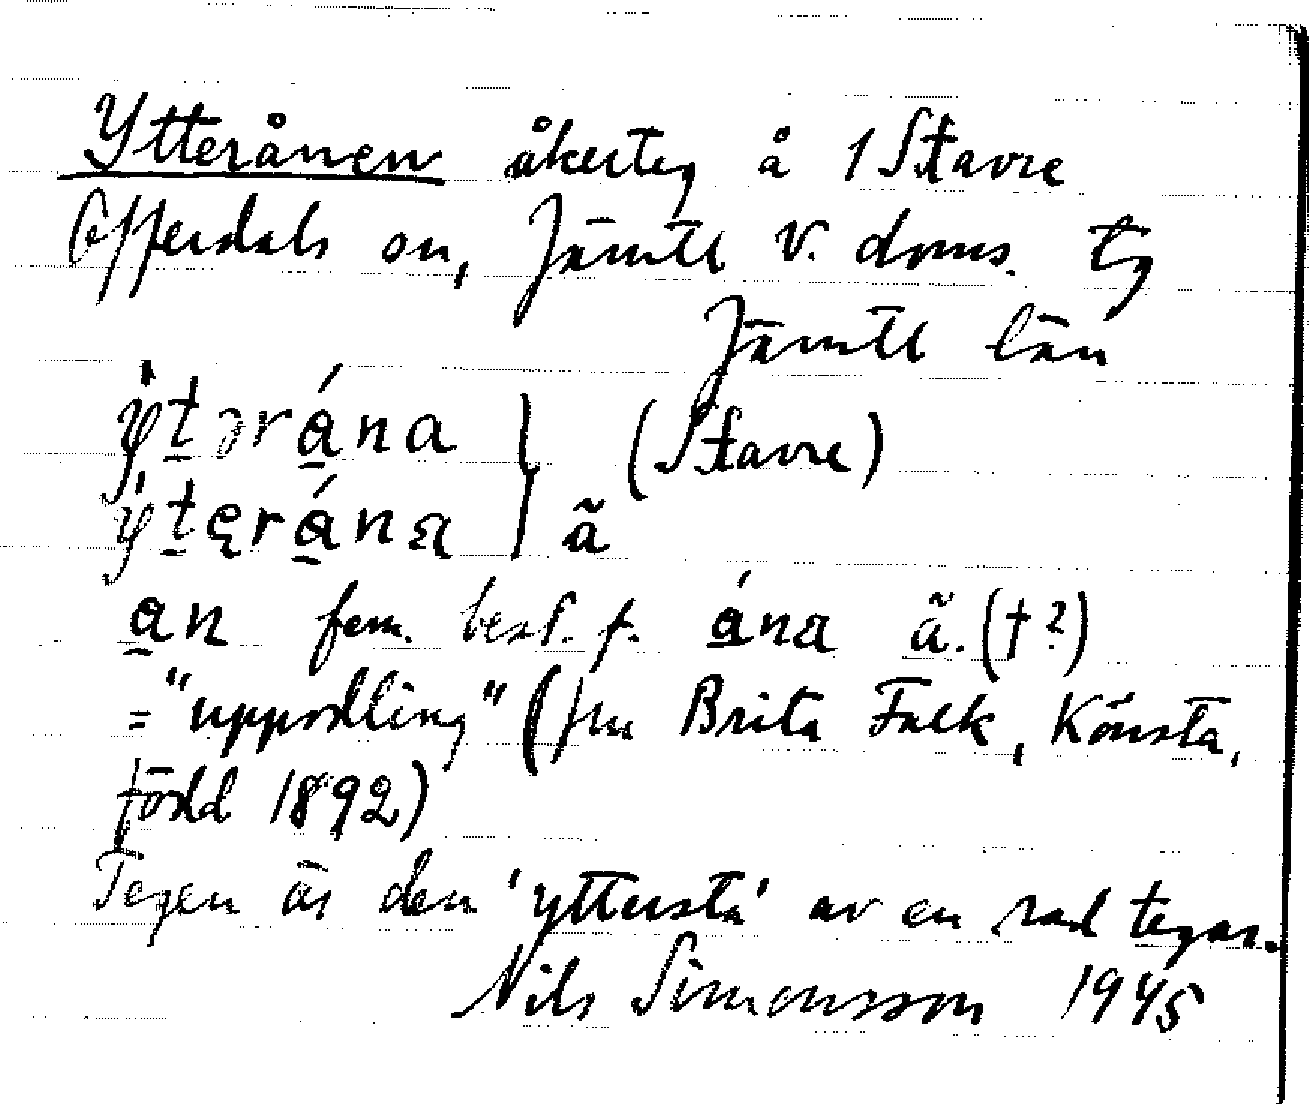 Ytterånen åkerteg å 1 Stavre
Offerdals sn, Jämtl V. doms. tg
Jämtl län
ỳtərána } (Stavre)
ýtęránα } ã
an fem. best. f. ánα ã. († ?)
= "uppodling" (fru Brita Falk, Kônsta,
född 1892)
Tegen är den 'yttersta' av en rad tegar.
Nils Simonsson 1945